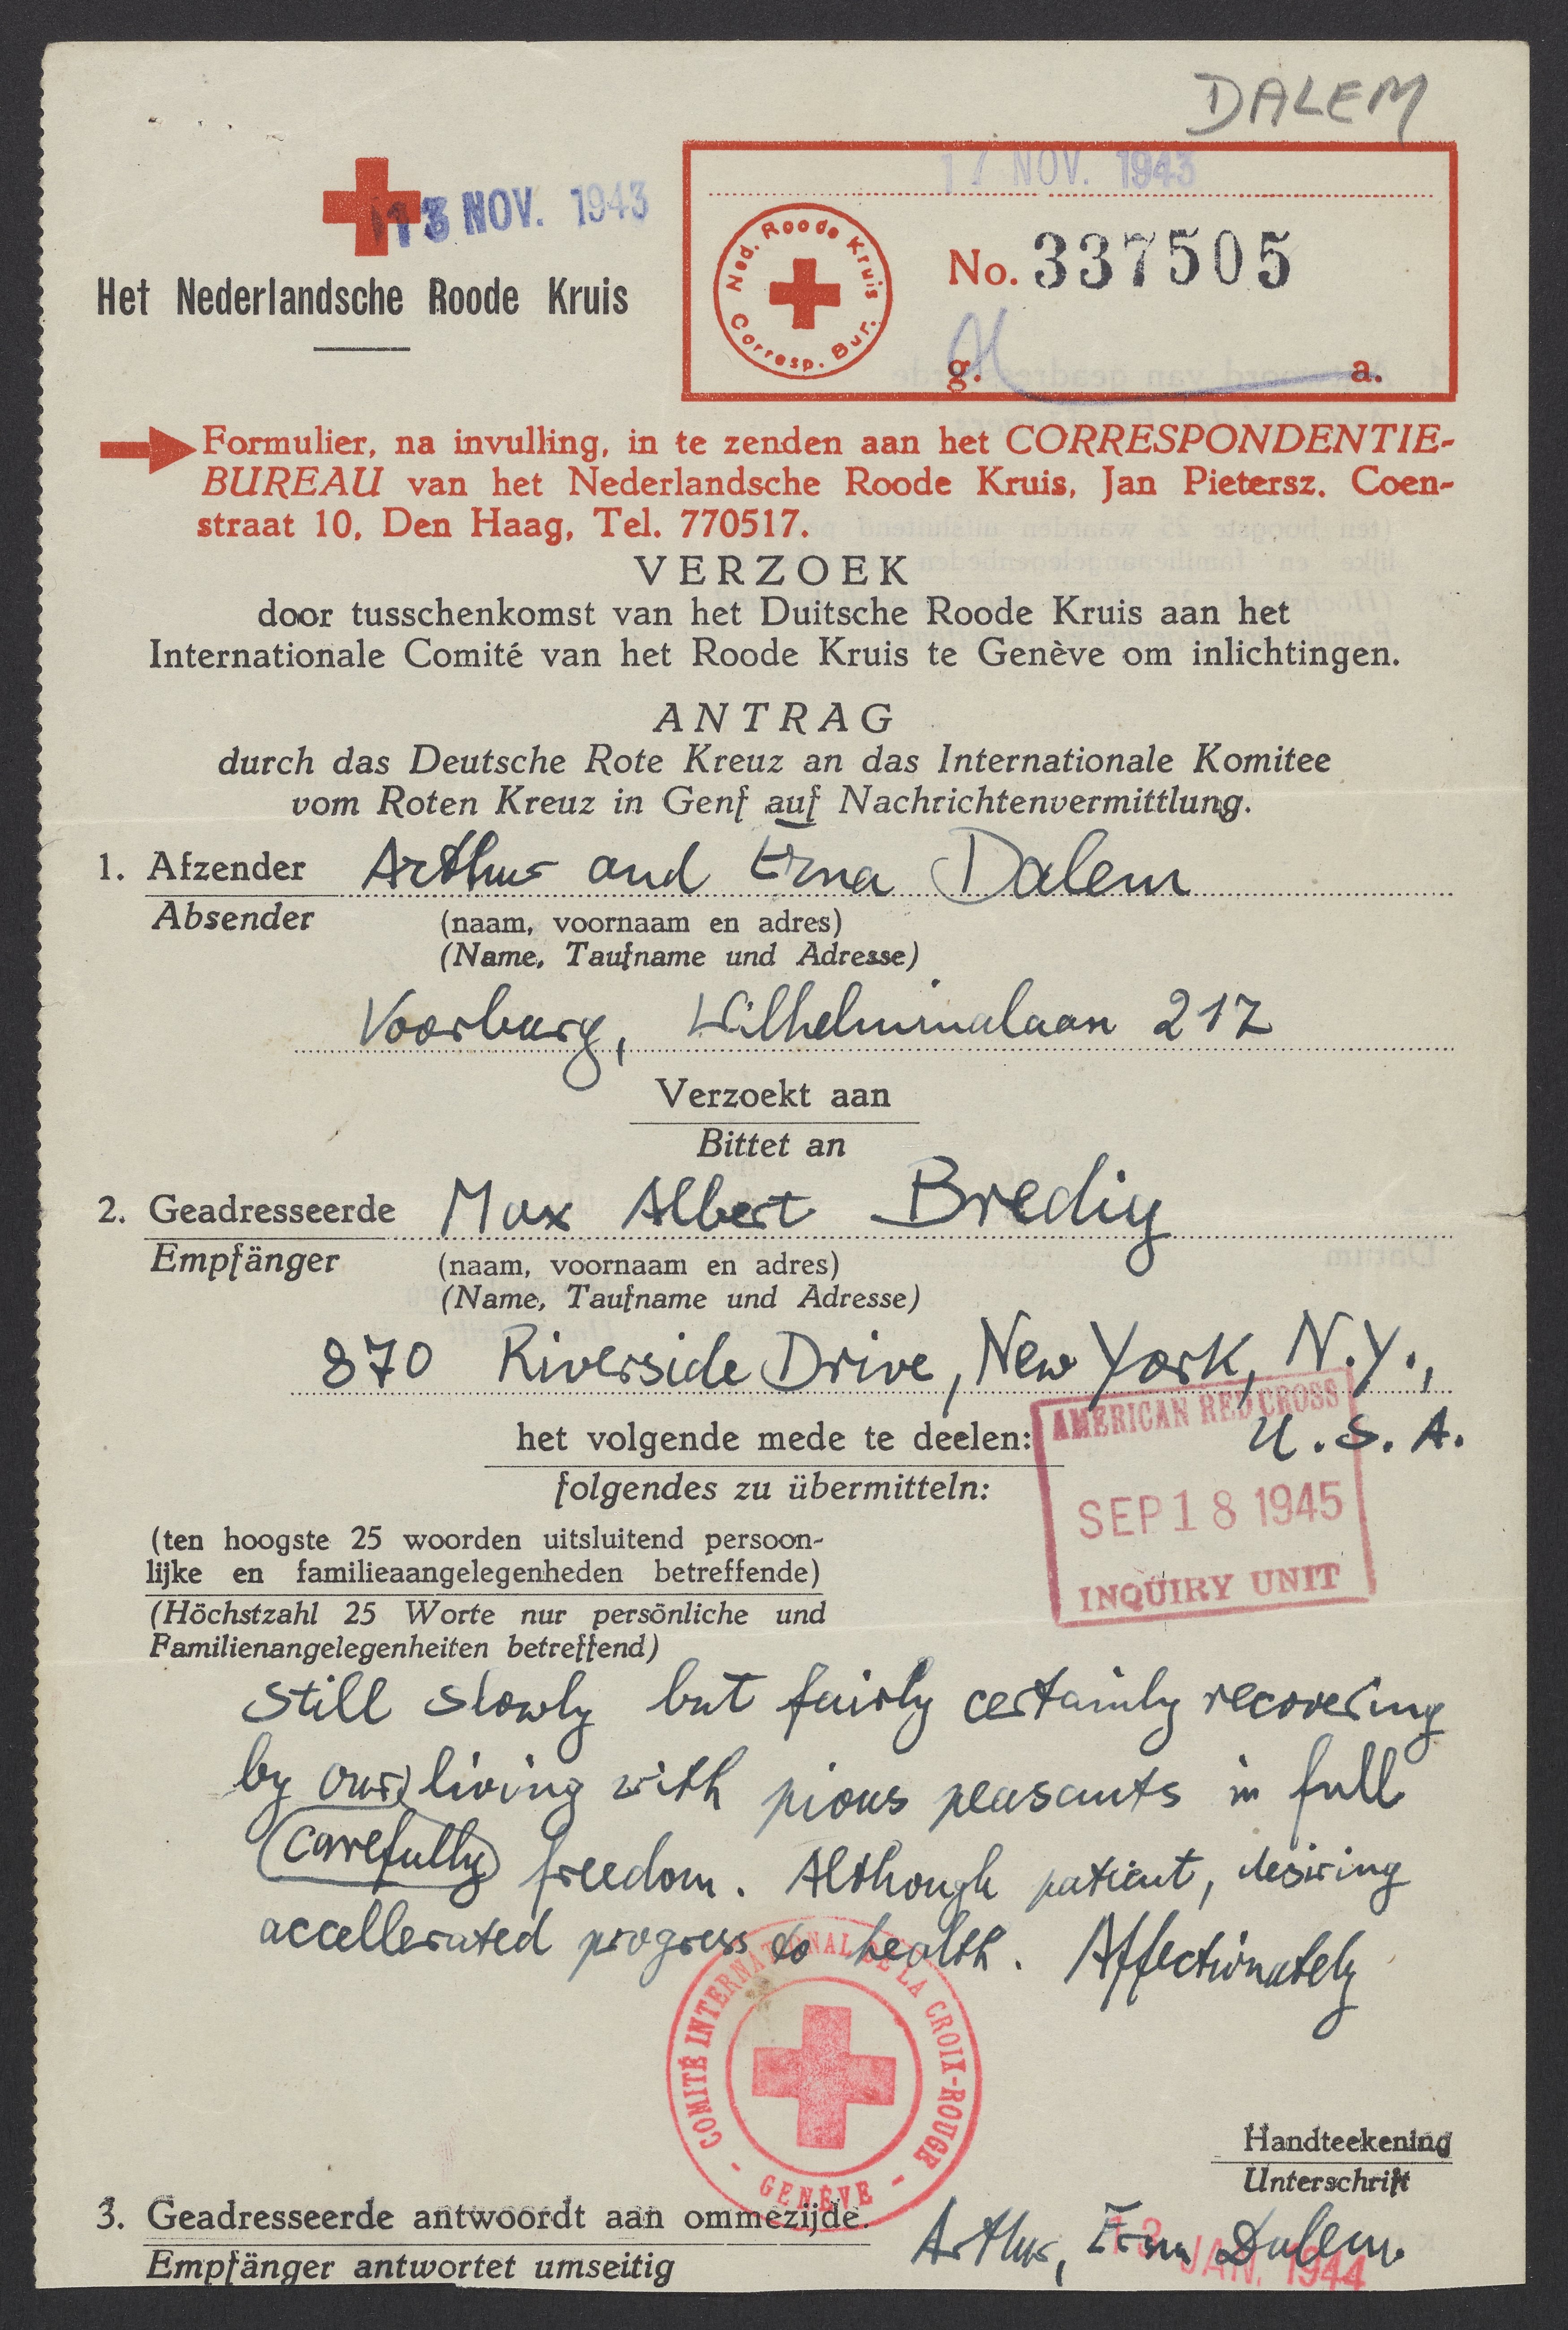 DALEM
13 NOV. 1943
17 NOV. 1943
Het Nederlandsche Roode Kruis
Ned. Roode Kruis
Corresp. Bur.
No. 337505
g. a.
Formulier, na invulling, in te zenden aan het CORRESPONDENTIE-
BUREAU van het Nederlandsche Roode Kruis, Jan Pietersz. Coen-
straat 10, Den Haag, Tel. 770517.
VERZOEK
door tusschenkomst van het Duitsche Roode Kruis aan het
Internationale Comité van het Roode Kruis te Genève om inlichtingen.
ANTRAG
durch das Deutsche Rote Kreuz an das Internationale Komitee
vom Roten Kreuz in Genf auf Nachrichtenvermittlung.
1. Afzender Arthur and Erna Dalem
Absender (naam, voornaam en adres)
(Name, Taufname und Adresse)
Voorburg, Wilhelminalaan 217
Verzoekt aan
Bittet an
2. Geadresseerde Max Albert Bredig
Empfänger (naam, voornaam en adres)
(Name, Taufname und Adresse)
870 Riverside Drive, New York, N.Y.,
U.S.A.
het volgende mede te deelen:
folgendes zu übermitteln:
AMERICAN RED CROSS
SEP 18 1945
INQUIRY UNIT
(ten hoogste 25 woorden uitsluitend persoon-
lijke en familieaangelegenheden betreffende)
(Höchstzahl 25 Worte nur persönliche und
Familienangelegenheiten betreffend)
Still slowly but fairly certainly recovering
by our living with pious peasants in full
carefully freedom. Although patient, desiring
accellerated progress to health. Affectionately
COMITÉ INTERNATIONAL DE LA CROIX-ROUGE
- GENÈVE -
Handteekening
Unterschrift
3. Geadresseerde antwoordt aan ommezijde.
Empfänger antwortet umseitig
Arthur, Erna Dalem
JAN. 1944